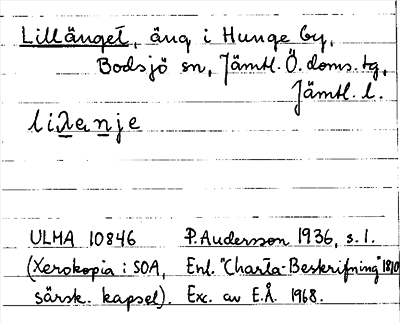 Lillänget, äng i Hunge by,
Bodsjö sn, Jämtl. Ö. doms. tg,
Jämtl. l.
ULMA 10846 P. Andersson 1936, s. 1.
(Xerokopia i SOA, Enl. "Charta-Beskrifning" 1810
särsk. kapsel). Exc. av E.Å. 1968.